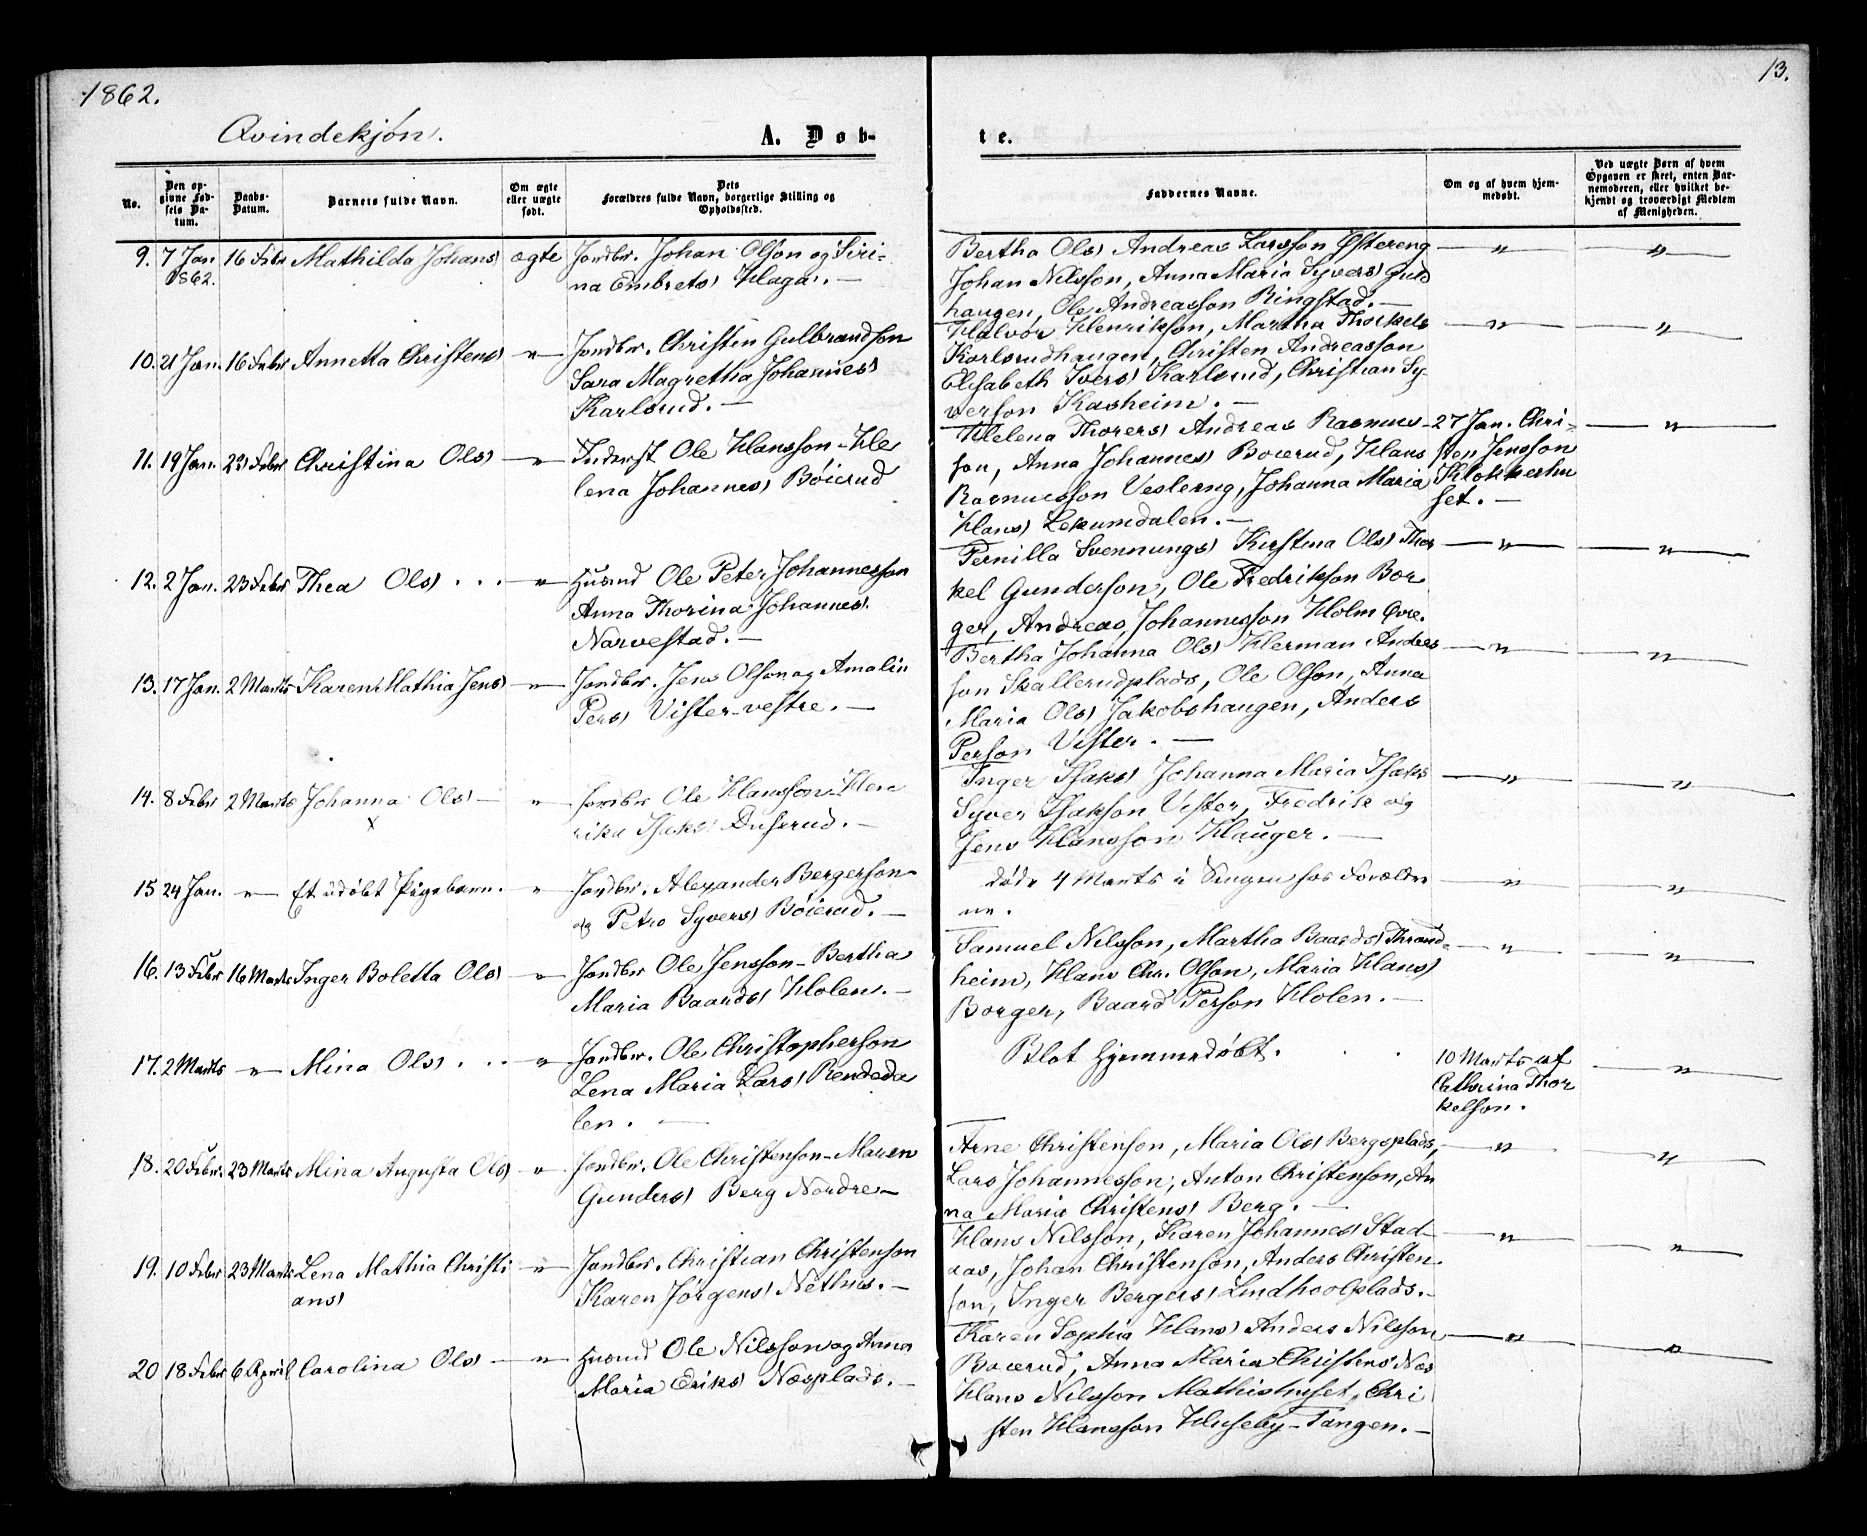 1862.
13.
Qvindekjøn.
A. Døb-
te.
No.
Den opgivne Fødsels Datum.
Daabs-Datum.
Barnets fulde Navn.
Om ægte eller uægte født.
Dets Forældres fulde Navn, borgerlige Stilling og Opholdssted.
Faddernes Navne.
Om og af hvem hjemmedøbt.
Ved uægte Børn af hvem Opgaven er skeet, enten Barnemoderen, eller hvilket bekjendt og troværdigt Medlem af Menigheden.
9. 7 Jan 1862. 16 Febr Mathilda Johans) ægte
Jordbr. Johan Olson og Siri-
na Embrets) Haga. —
Bertha Ols) Andreas Larsson Østereng — " — — " —
Johan Nilsson, Anna Maria Syvers) Guld
haugen, Ole Andreasson Ringstad. —
10. 21 Jan. 16 Febr Annetta Christens) — " —
Jordbr. Christen Gulbrandson
Sara Magretha Johannes)
Karlsrud. —
Halvor Henrikson, Martha Thorkels — " — — " —
Karlsrudhaugen, Christen Andreasson
Elisabeth Ivers) Karlsrud, Christian Sy-
verson Kasheim. —
11. 19 Jan. 23 Febr Christina Ols) — " —
Inderst Ole Hansson - He
lena Johannes) Böierud
Helena Thorers) Andreas Rasmus-
son, Anna Johannes) Boierud, Hans
Rasmusson Vesleng, Johanna Maria
Hans) Lekumdalen. —
27 Jan. Chri-
sten Jensson
Klokkerhu
set. —
— " —
12. 2 Jan. 23 Febr Thea Ols) . . . — " —
Husmd Ole Peter Johannesson
Anna Thorina Johannes.
Narvestad. —
Pernilla Svennungs) Kirstina Ols) Thor — " — — " —
kel Gunderson, Ole Fredrikson Bor
ger, Andreas Johannesson Holm Øvre.
13. 17 Jan. 2 Marts Karen Mathia Jens) — " —
Jordbr. Jens Olson og Amalia
Pers) Vister-vestre. —
Bertha Johanna Ols) Herman Andres — " — — " —
son Skallerudplads, Ole Olson, Anna
Maria Ols) Jakobshaugen, Anders
Person Vister. —
14. 8 Febr 2 Marts Johanna Ols) — "
x
Jordbr Ole Hansson - Hen
rika Isaks) Duserud. —
Inger Isaks) Johanna Maria Isaks — " — — " —
Syver Isakson Vister, Fredrik og
Jens Hansson Hauger. —
15 24 Jan. — " — Et udøbt Pigebarn. "
Jordbr. Alexander Bergerson -
og Petro Syvers) Böierud. —
døde 4 Marts i Sengen hos Forældre — " — — " —
ne.
16. 13 Febr 16 Marts Inger Boletta Ols) — "
Jordbr Ole Jensson - Bertha
Maria Baards) Holen. —
Samuel Nilsson, Martha Baards) Thrond- — " — — " —
heim, Hans Chr. Olson, Maria Hans)
Borger, Baard Person Holen. —
17. 2 Marts — " — Mina Ols) . . . — "
Jordbr. Ole Christopherson
Lena Maria Lars) Rendeda
len. —
Blot Hjemmedøbt. . .
10 Marts af
Cathrina Thor
kelson.
— " —
18. 20 Febr. 23 Marts Mina Augusta Ols) — "
Jordbr. Ole Christenson - Maren
Gunders) Berg Nordre —
Arne Christenson, Maria Ols) Bergsplads, — " — — " —
Lars Johannesson, Anton Christenson, An
na Maria Christens) Berg. —
19. 10 Febr 23 Marts Lena Mathia Christi
ans) — " —
Jordbr. Christian Christenson
Karen Jörgens) Nethus. —
Hans Nilsson, Karen Johannes) Stad- — " — — " —
aas, Johan Christenson, Anders Christen-
son, Inger Bergers) Lindhoolplads. —
20 18 Febr 6 April Carolina Ols) — " —
Husmd Ole Nilsson og Anna
Maria Eriks) Næsplads. —
Karen Sophia Hans) Anders Nilsson — " — — " —
Boierud, Anna Maria Christens) Næs
Hans Nilsson Mathishuset, Chri
sten Hansson Huseby-Tangen. —